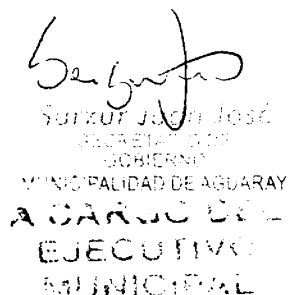 Surzur Juan José
SECRETARIO DE
GOBIERNO
MUNICIPALIDAD DE AGUARAY
A CARGO DEL
EJECUTIVO
MUNICIPAL